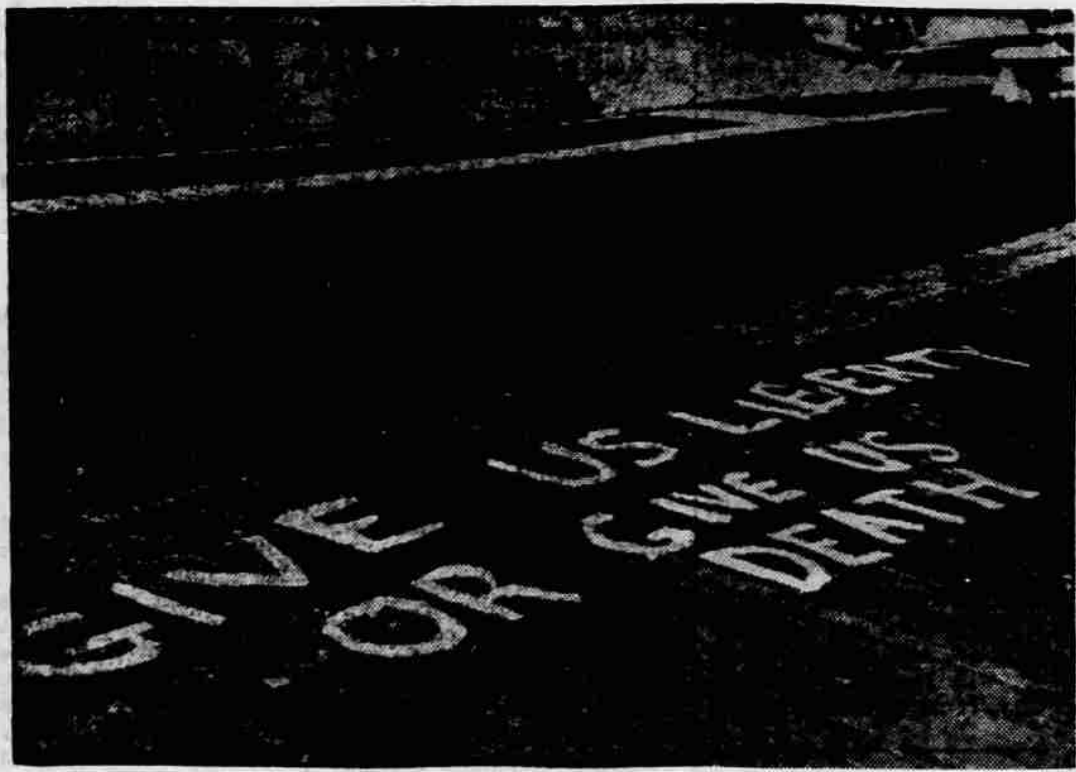 GIVE US LIBERTY
OR GIVE US
DEATH